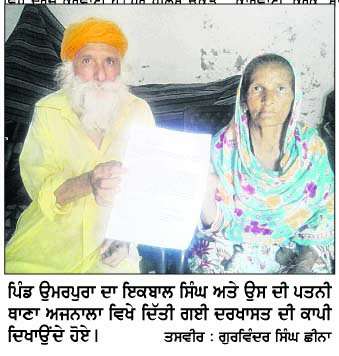 ਪਿੰਡ ਉਮਰਪੁਰਾ ਦਾ ਇਕਬਾਲ ਸਿੰਘ ਅਤੇ ਉਸ ਦੀ ਪਤਨੀ
ਥਾਣਾ ਅਜਨਾਲਾ ਵਿਖੇ ਦਿੱਤੀ ਗਈ ਦਰਖਾਸਤ ਦੀ ਕਾਪੀ
ਦਿਖਾਉਂਦੇ ਹੋਏ। ਤਸਵੀਰ : ਗੁਰਵਿੰਦਰ ਸਿੰਘ ਛੀਨਾ